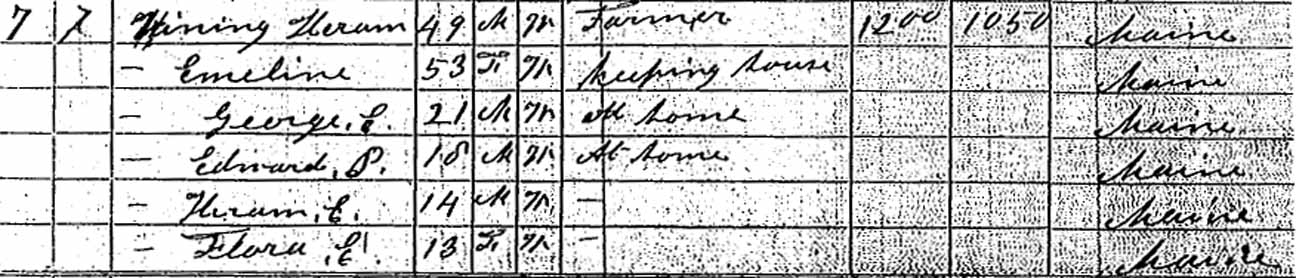 7 7 Vining Hiram 49 M W Farmer 1200 1050 Maine
— Emeline 53 F W Keeping house Maine
— George, E. 21 M W At home Maine
— Edward, P. 18 M W At home Maine
— Hiram, E. 14 M W — Maine
— Flora, E. 13 F W — Maine